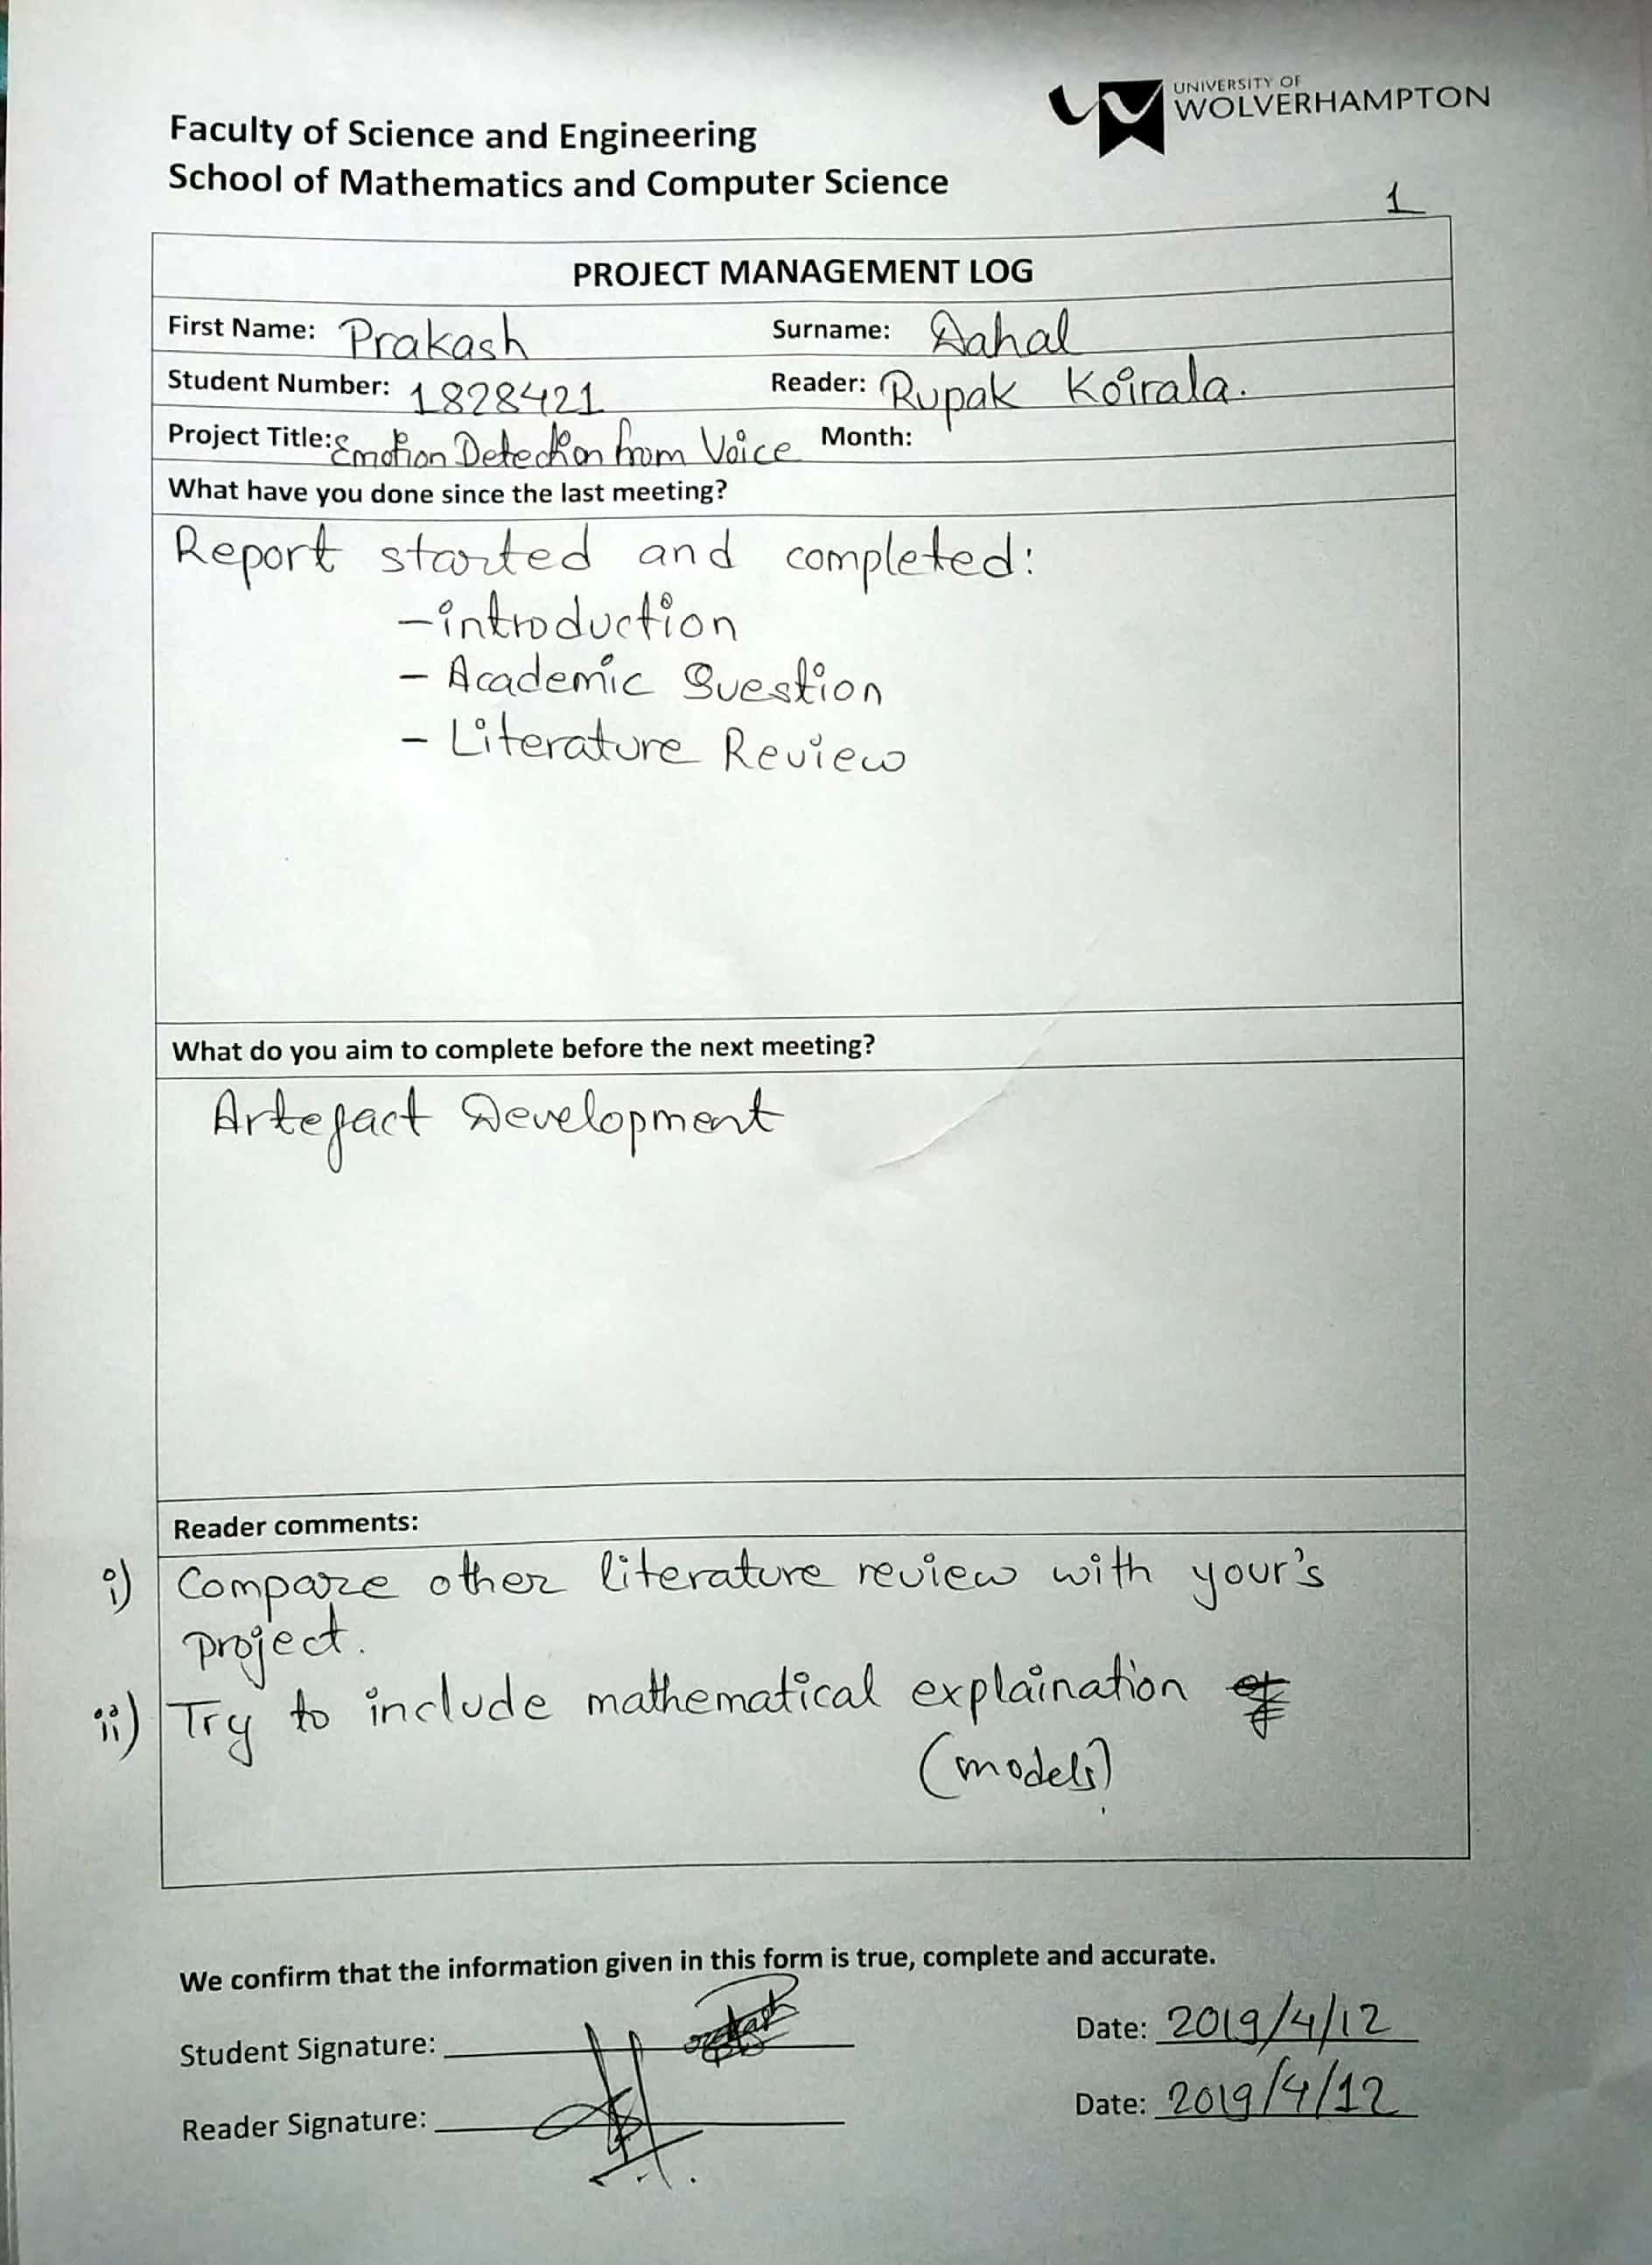 UNIVERSITY OF
WOLVERHAMPTON
Faculty of Science and Engineering
School of Mathematics and Computer Science
1
PROJECT MANAGEMENT LOG
First Name: Prakash Surname: Dahal
Student Number: 1828421 Reader: Rupak Koirala.
Project Title: Emotion Detection from Voice Month:
What have you done since the last meeting?
Report started and completed:
- introduction
- Academic Question
- Literature Review
What do you aim to complete before the next meeting?
Artefact Development
Reader comments:
i) Compare other literature review with your's
project.
ii) Try to include mathematical explaination
(models)
We confirm that the information given in this form is true, complete and accurate.
Student Signature: Date: 2019/4/12
Reader Signature: Date: 2019/4/12